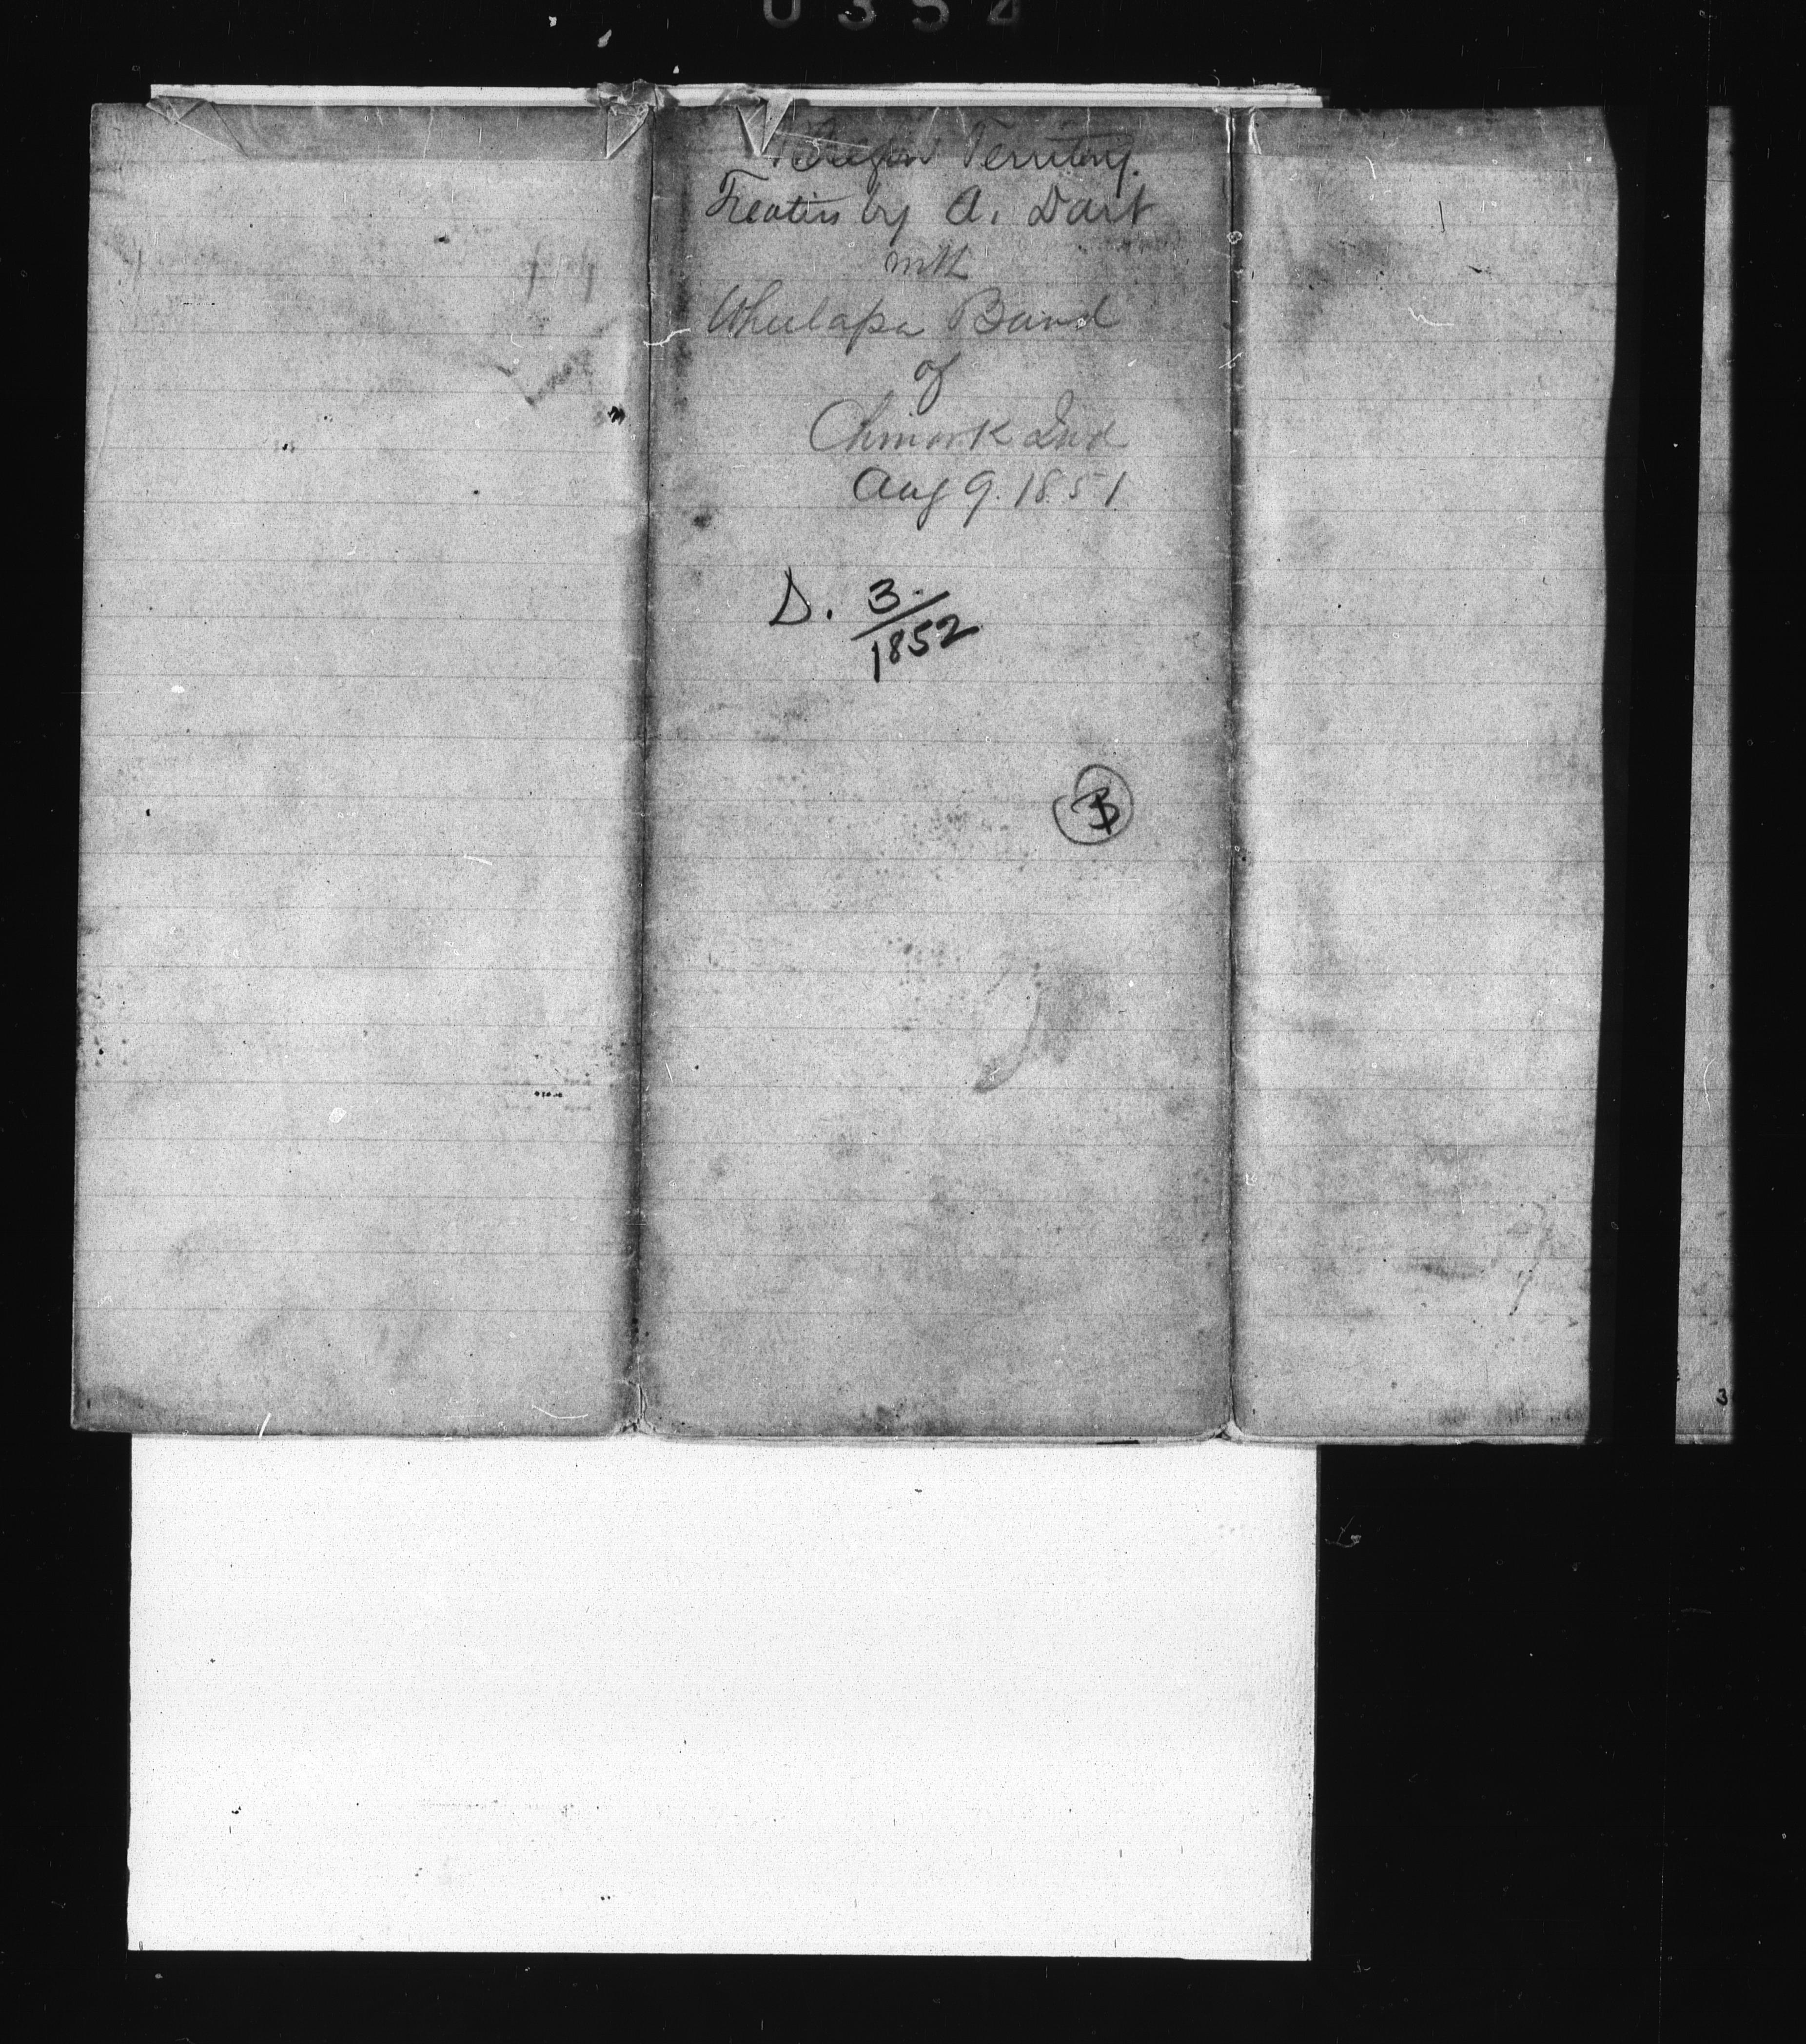 0354
Oregon Territory.
Treaties by A. Dart
with
Wheelapa Band
of
Chinook Ind
Aug 9. 1851
D. 3/1852
B
3